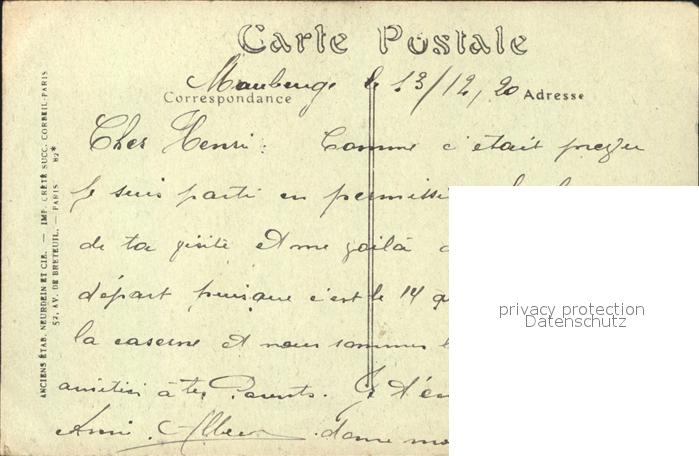 Carte Postale
Maubeuge le 13/12, 20
Correspondance
Adresse
Cher Henri : Comme c'était prévu
Je suis parti en permissi
de ta visite Et me voilà
départ puisque c'est le 14 q
la caserne et nous sommes l
amitiés à tes Parents. Je t'en
Ami Albert dans mo
privacy protection
Datenschutz
ANCIENS ÉTAB. NEURDEIN ET CIE. — IMP. CRÉTÉ SUCC. CORBEIL-PARIS
52, AV. DE BRETEUIL. — PARIS